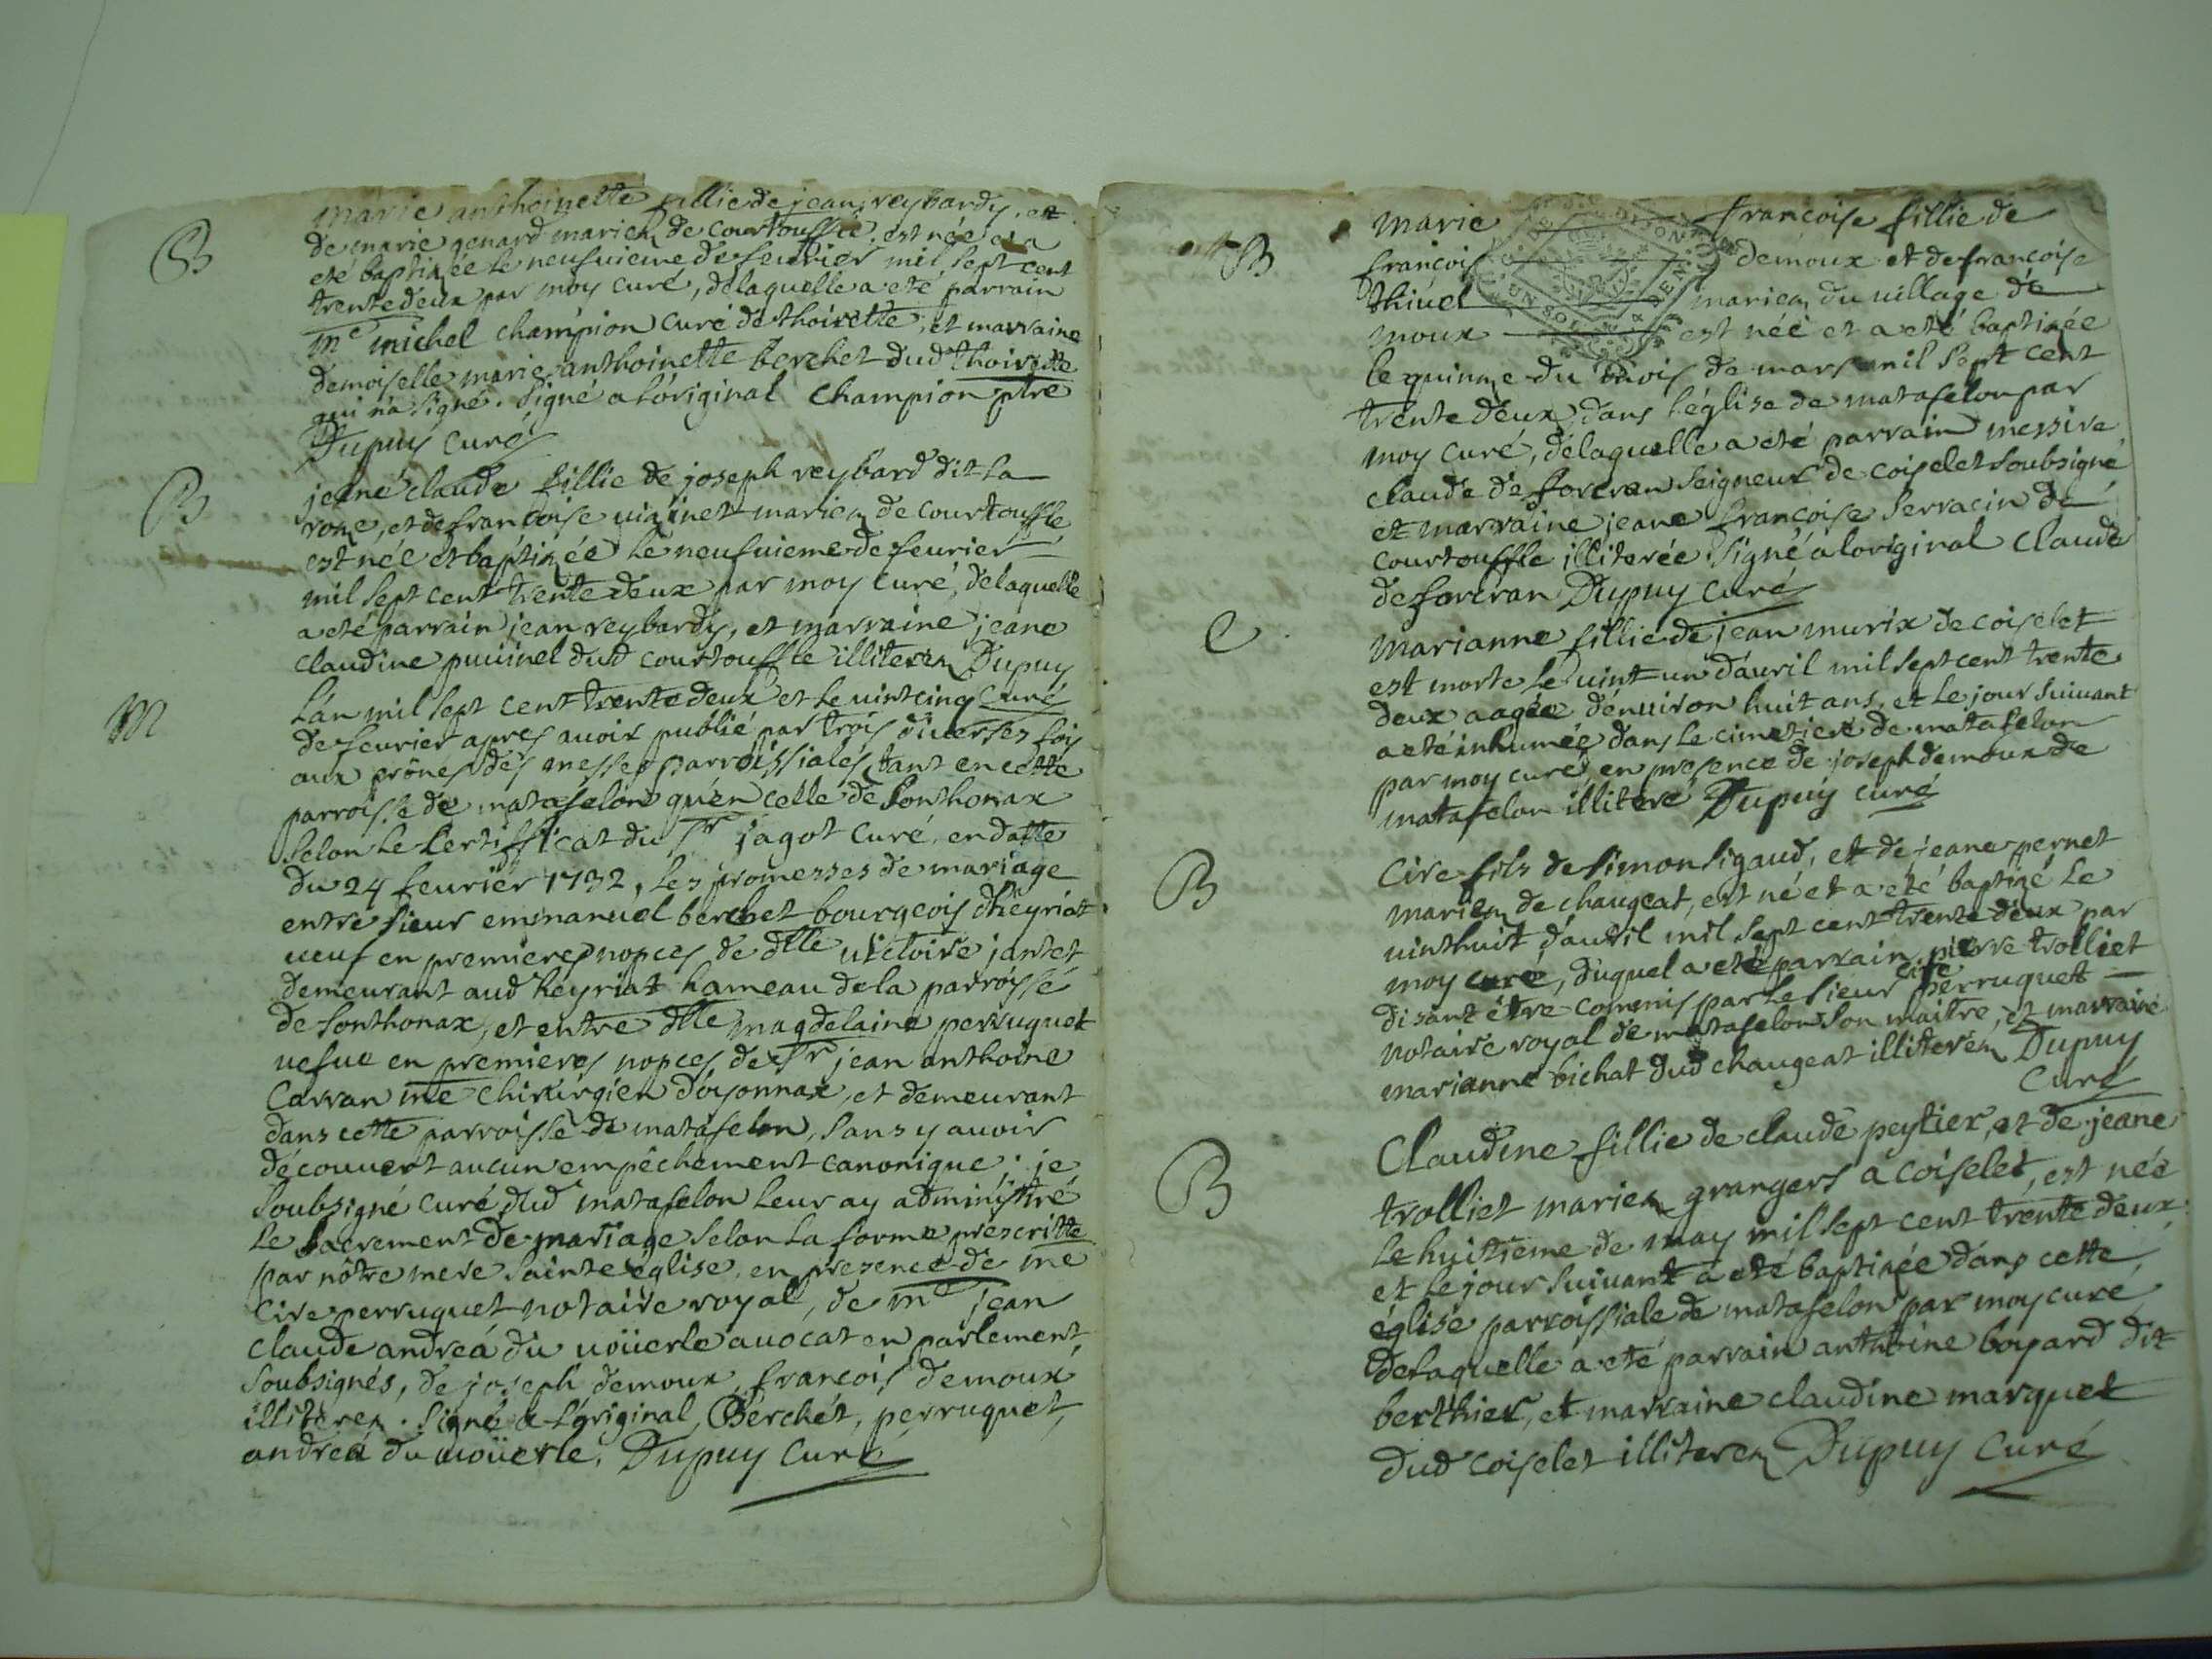 B
marie anthoinette fillie de jean reybardy, et
de marie genard mariez de courtouffle, est née et a
eté baptizée le neufuieme de feurier mil sept cent
trente deux par moy curé, de laquelle a eté parrain
me michel champion curé de thoirette, et marraine
demoiselle marie anthoinette berchet dud thoirette
qui n'a signé. signé a l'original champion ptre
Dupuy curé
B
jeane claude fillie de joseph reybard dit la
roze, et de francoise uizinet mariez de courtouffle
est née et baptizée le neufuieme de feurier
mil sept cent trente deux par moy curé, de laquelle
a eté parrain jean reybardy, et marraine jeane
claudine puuinel dud courtouffle illiterez Dupuy
curé
M
L'an mil sept cent trente deux et le uint cinq
de feurier apres auoir publié par trois diuerses fois
aux prônes des messes parroissiales tant en cette
parroisse de matafelon qu'en celle de sonthonax
selon le certifficat du sr jagot curé, en datte
du 24 feurier 1732, les promesses de mariage
entre sieur emmanuel berchet bourgeois d'heyriat
ueuf en premieres nopces de dlle uictoire jantet
demeurant aud heyriat hameau de la parroisse
de sonthonax, et entre dlle magdelaine perruquet
uefue en premieres nopces de sr jean anthoine
Carran me chirurgien d'oyonnax, et demeurant
dans cette parroisse de matafelon, sans y auoir
découuert aucun empêchement canonique; je
soubsigné curé dud matafelon leur ay administré
le sacrement de mariage selon la forme prescritte
par nôtre mere sainte église, en presence de me
Cire perruquet notaire royal, de me jean
claude andrea du uoüerle auocat en parlement
soubsignés, de joseph demoux, francois demoux
illiterez. signé a l'original Berchet, perruquet,
andrea du uoüerle, Dupuy curé
B
marie francoise fillie de
francois demoux et de francoise
thiuel mariez du uillage de
moux est née et a eté baptizée
le quinze du mois de mars mil sept cent
trente deux dans l'église de matafelon par
moy curé, de laquelle a eté parrain messire
claude de forcran seigneur de coiselet soubsigné
et marraine jeane francoise serracin de
courtouffle illiterée. signé a loriginal claude
de forcran Dupuy curé
UN SOL
C
marianne fillie de jean murix de coiselet
est morte le uint un d'auril mil sept cent trente
deux aagée d'enuiron huit ans, et le jour suiuant
a eté inhumée dans le cimetiere de matafelon
par moy curé, en presence de joseph demoux de
matafelon illiteré Dupuy curé
B
Cire fils de simon sigaud, et de jeane pernet
mariez de changeat, est né et a eté baptizé le
uinthuit d'auril mil sept cent trente deux par
moy curé, duquel a eté parrain pierre trolliet
disant être commis par le sieur cire perruquet
notaire royal de matafelon son maitre, et marraine
marianne bichat dud changeat illiterez Dupuy
curé
B
Claudine fillie de claude peytier, et de jeane
trolliet mariez grangers a coiselet, est née
le huitieme de may mil sept cent trente deux
et le jour suiuant a eté baptizée dans cette
église parroissiale de matafelon par moy curé
de laquelle a eté parrain anthoine boyard dit
berthier, et marraine claudine marquet
dud coiselet illiterez Dupuy curé